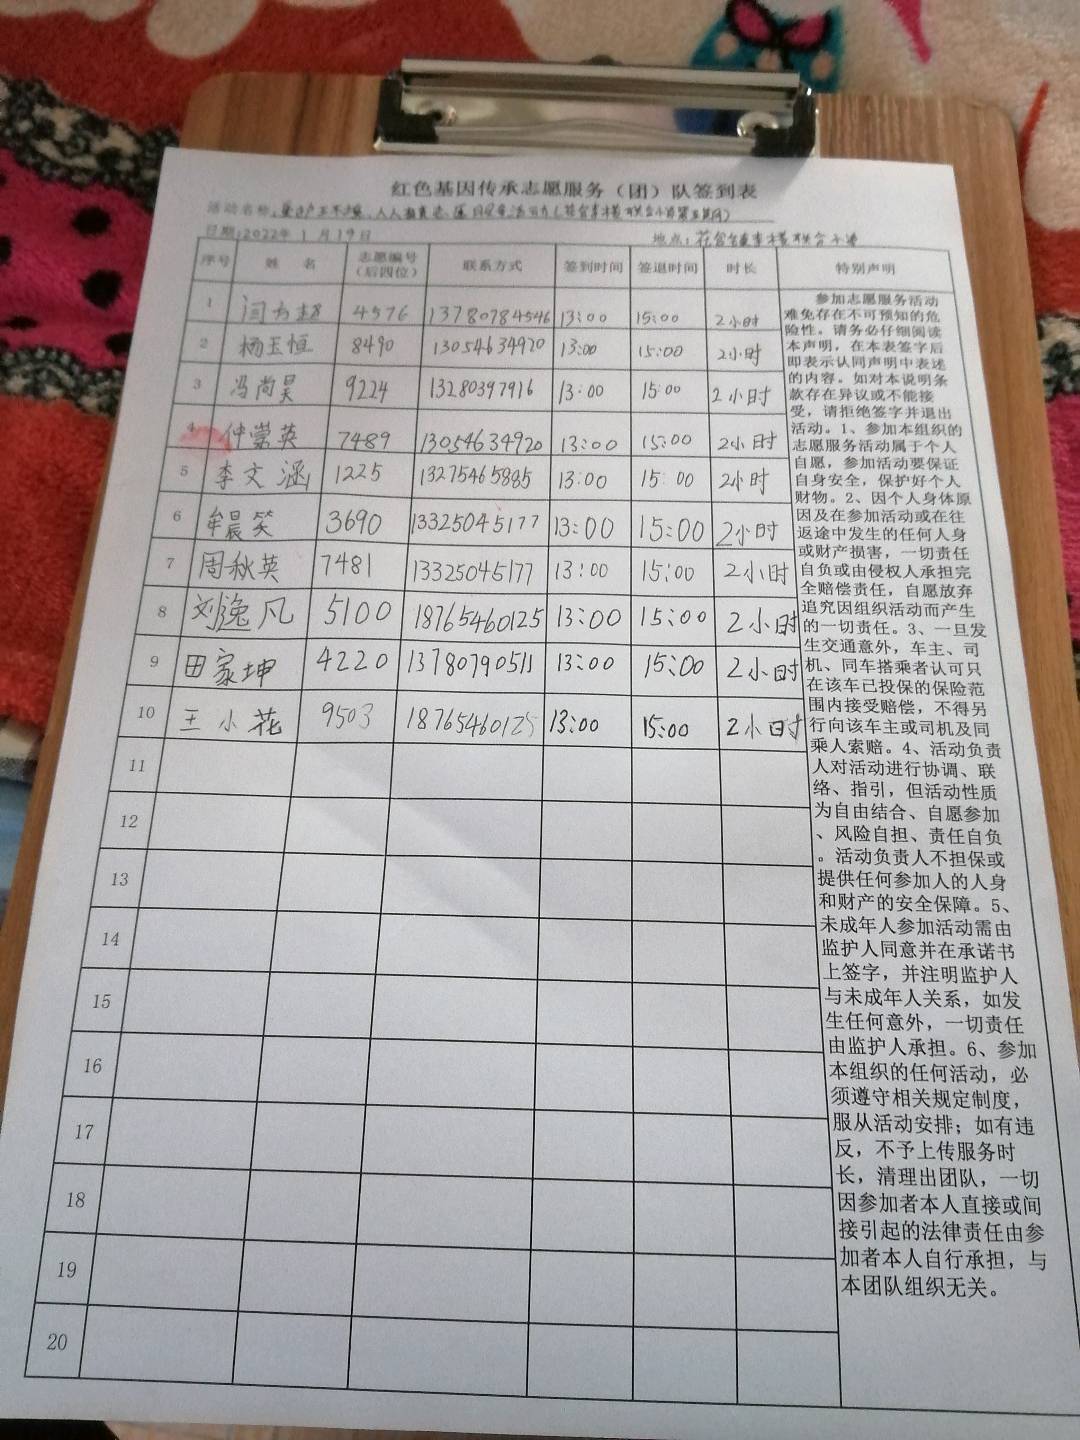 红色基因传承志愿服务（团）队签到表
活动名称：
日期：2022年 1 月19日 地点：花官镇李楼联合小学
序号 姓 名 志愿编号（后四位） 联系方式 签到时间 签退时间 时长 特别声明
1 闫 超 4576 13780784546 13:00 15:00 2小时
2 杨玉恒 8490 13054634920 13:00 15:00 2小时
3 冯尚昊 9224 13280397916 13:00 15:00 2小时
4 仲崇英 7489 13054634920 13:00 15:00 2小时
5 李文涵 1225 13275465885 13:00 15:00 2小时
6 牟晨笑 3690 13325045177 13:00 15:00 2小时
7 周秋英 7481 13325045177 13:00 15:00 2小时
8 刘逸凡 5100 18765460125 13:00 15:00 2小时
9 田家坤 4220 13780790511 13:00 15:00 2小时
10 王小花 9503 18765460125 13:00 15:00 2小时
11
12
13
14
15
16
17
18
19
20
参加志愿服务活动
难免存在不可预知的危
险性。请务必仔细阅读
本声明，在本表签字后
即表示认同声明中表述
的内容。如对本说明条
款存在异议或不能接
受，请拒绝签字并退出
活动。1、参加本组织的
志愿服务活动属于个人
自愿，参加活动要保证
自身安全，保护好个人
财物。2、因个人身体原
因及在参加活动或在往
返途中发生的任何人身
或财产损害，一切责任
自负或由侵权人承担完
全赔偿责任，自愿放弃
追究因组织活动而产生
的一切责任。3、一旦发
生交通意外，车主、司
机、同车搭乘者认可只
在该车已投保的保险范
围内接受赔偿，不得另
行向该车主或司机及同
乘人索赔。4、活动负责
人对活动进行协调、联
络、指引，但活动性质
为自由结合、自愿参加
、风险自担、责任自负
。活动负责人不担保或
提供任何参加人的人身
和财产的安全保障。5、
未成年人参加活动需由
监护人同意并在承诺书
上签字，并注明监护人
与未成年人关系，如发
生任何意外，一切责任
由监护人承担。6、参加
本组织的任何活动，必
须遵守相关规定制度，
服从活动安排；如有违
反，不予上传服务时
长，清理出团队，一切
因参加者本人直接或间
接引起的法律责任由参
加者本人自行承担，与
本团队组织无关。